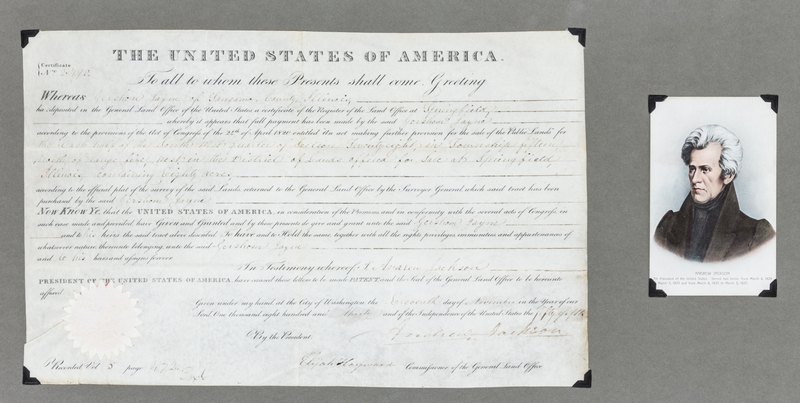 THE UNITED STATES OF AMERICA.
Certificate
To all to whom these Presents shall come, Greeting
Whereas Gershom Jayne of Sangamon County Illinois
has deposited in the General Land Office of the United States a certificate of the Register of the Land Office at Springfield
whereby it appears that full payment has been made by the said Gershom Jayne
according to the provisions of the Act of Congress of the 24th of April 1820 entitled An act making further provision for the sale of the Public Lands for
the half of the North West quarter of Section Twenty eight, in Township fifteen
North of Range five, West, in the District of Lands offered for Sale at Springfield
Illinois containing eighty acres
according to the official plat of the survey of the said Lands, returned to the General Land Office by the Surveyor General which said tract has been
purchased by the said Gershom Jayne
Now Know Ye, that the UNITED STATES OF AMERICA, in consideration of the Premises and in conformity with the several acts of Congress in
such case made and provided have Given and Granted and by these presents do give and grant unto the said Gershom Jayne
and to his heirs the said tract above described To have and to Hold the same together with all the rights privileges, immunities, and appurtenances of
whatsoever nature thereunto belonging, unto the said Gershom Jayne
and to his heirs and assigns forever
In Testimony whereof I Andrew Jackson
PRESIDENT OF THE UNITED STATES OF AMERICA, have caused these letters to be made PATENT and the Seal of the General Land Office to be hereunto
affixed.
Given under my hand at the City of Washington the day of November in the Year of our
Lord One thousand eight hundred and thirty and of the Independence of the United States the fifty fifth
By the President: Andrew Jackson
Recorded Vol 3 page Elijah Hayward Commissioner of the General Land Office
ANDREW JACKSON